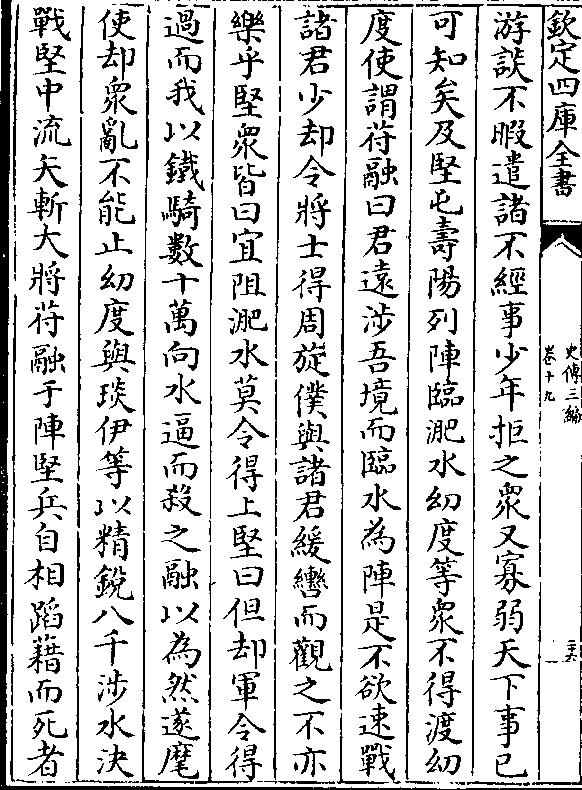 欽定四庫全書
史傳三編
卷十九
游談不暇遣諸不經事少年拒之衆又寡弱天下事已
可知矣及堅屯壽陽列陣臨淝水幼度等衆不得渡幼
度使謂苻融曰君遠涉吾境而臨水為陣是不欲速戰
諸君少却令將士得周旋僕與諸君緩轡而觀之不亦
樂乎堅衆皆曰宜阻淝水莫令得上堅曰但却軍令得
過而我以鐵騎數十萬向水逼而殺之融以為然遂麾
使却衆亂不能止幼度與琰伊等以精銳八千涉水決
戰堅中流矢斬大將苻融于陣堅兵自相蹈藉而死者